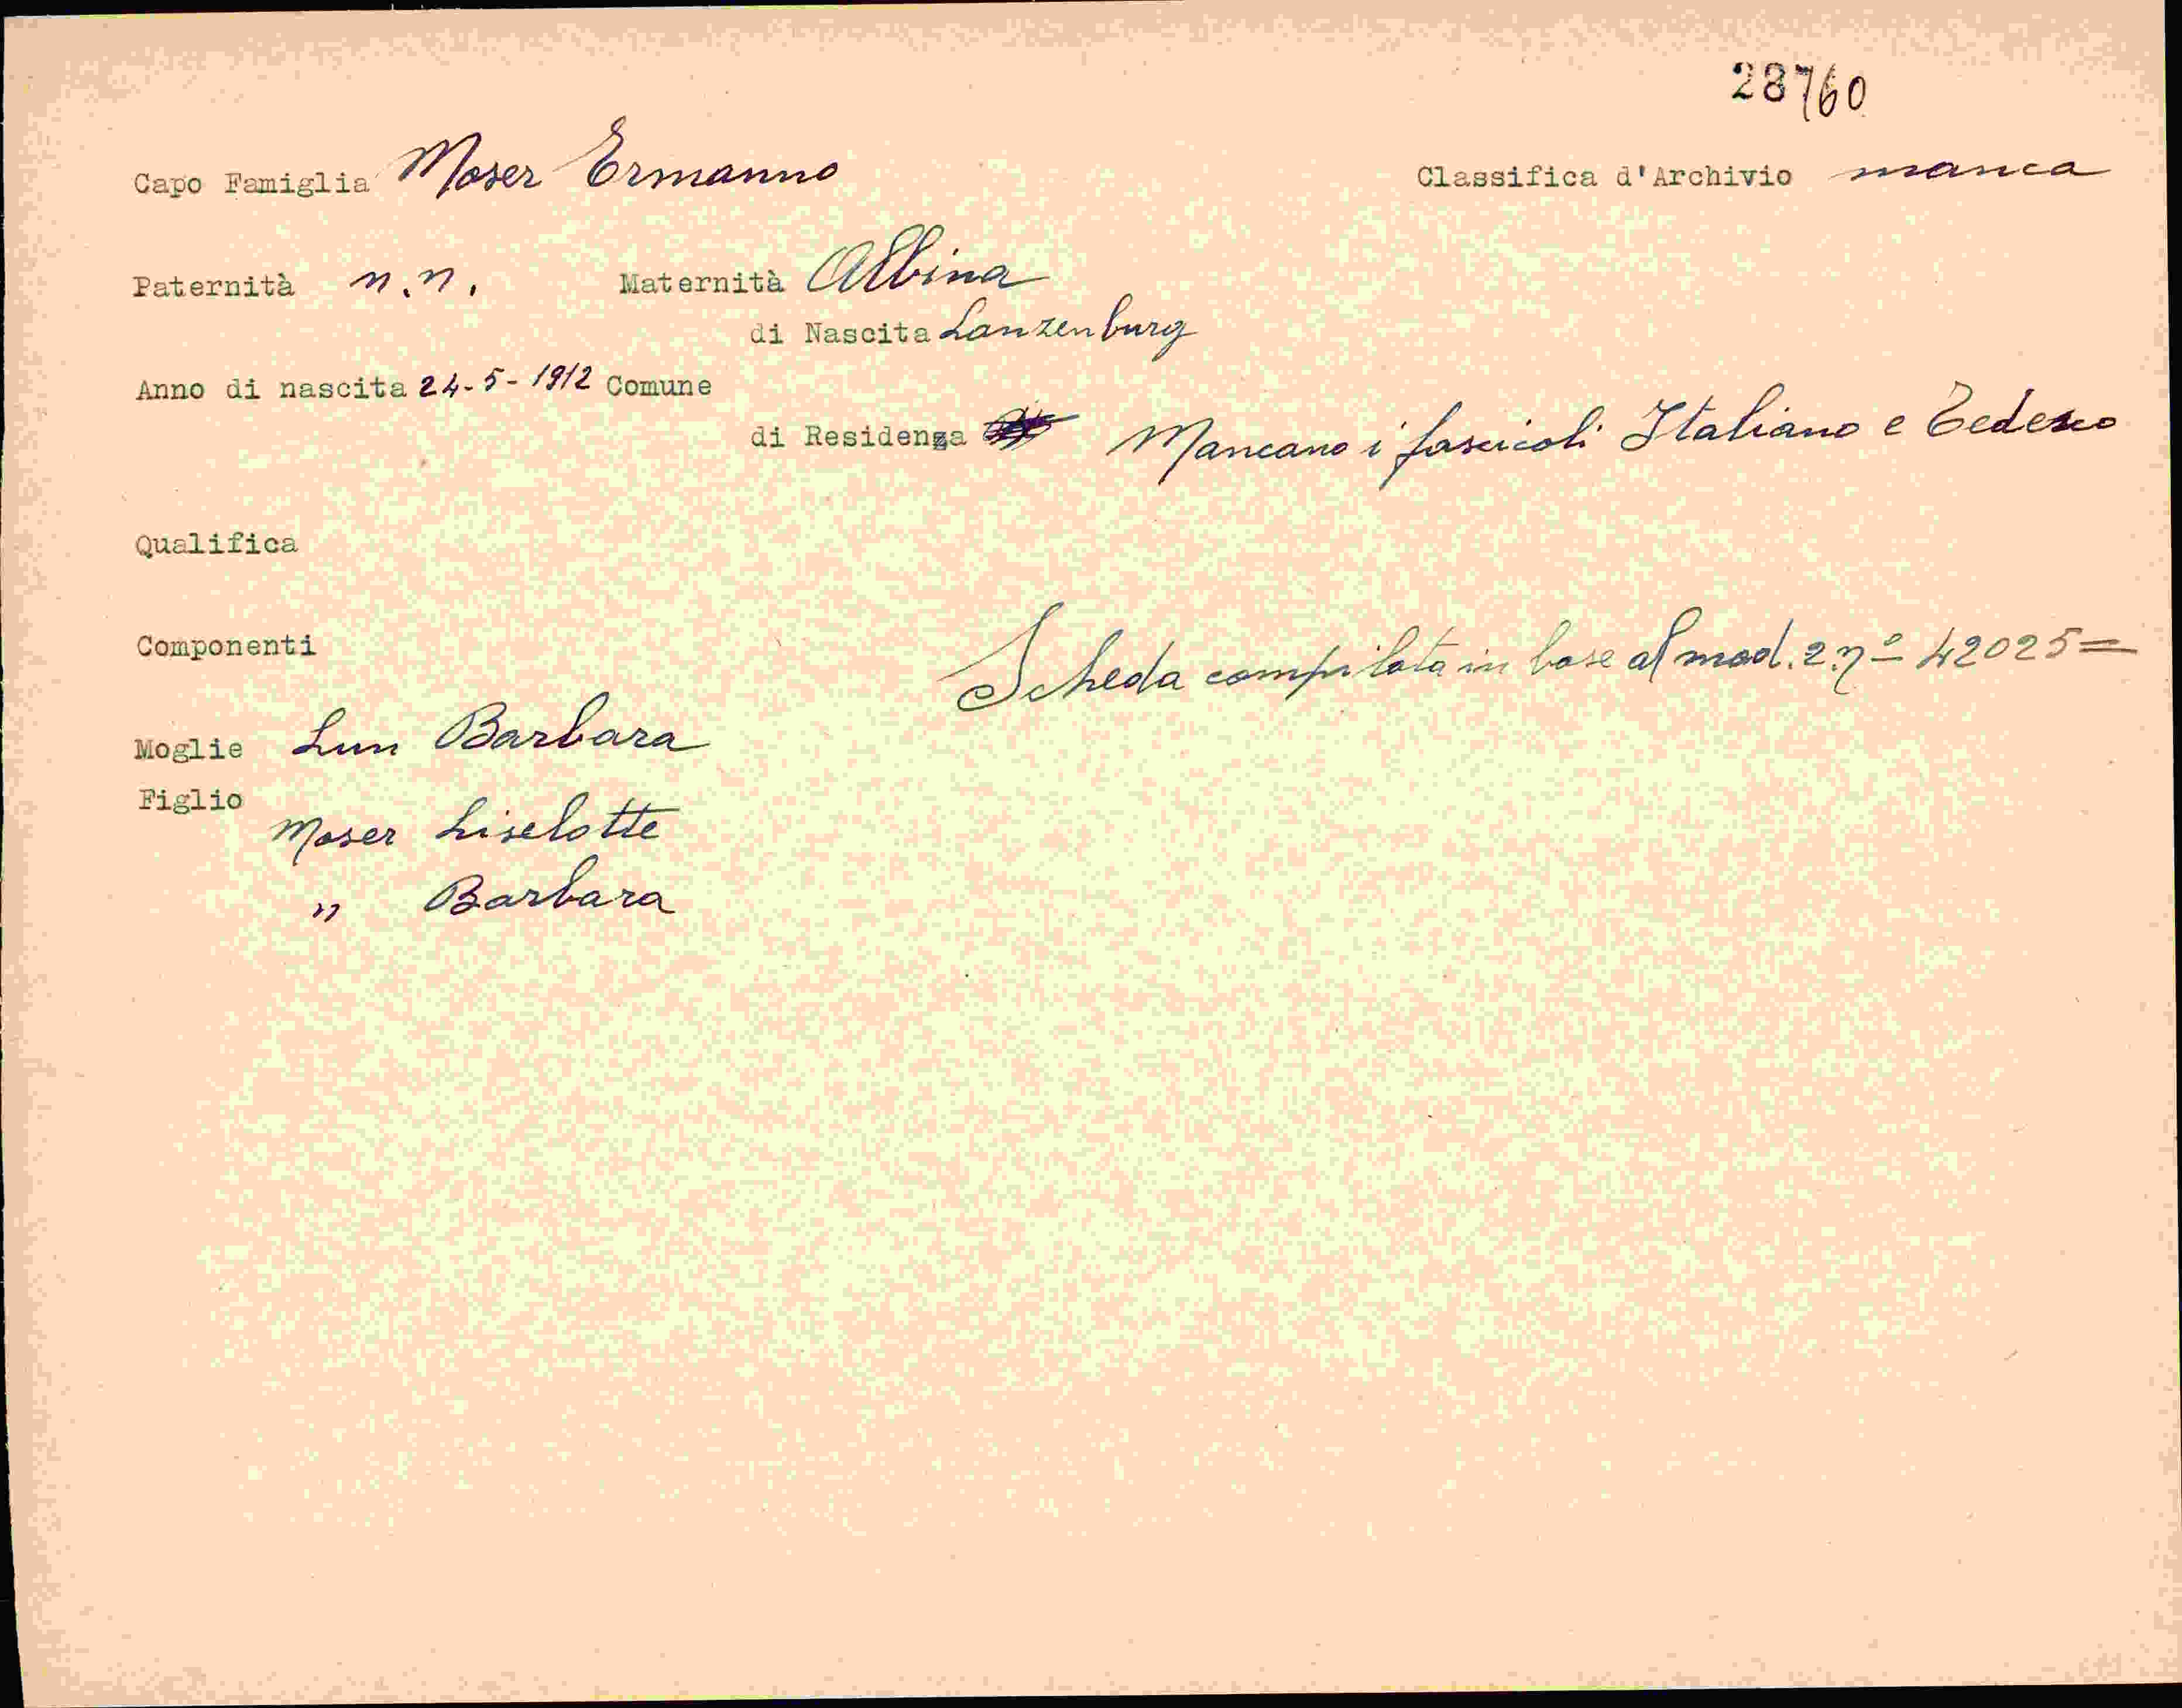 28760
Capo Famiglia Moser Ermanno Classifica d'Archivio manca
Paternità n.n. Maternità Albina
di Nascita Lanzenburg
Anno di nascita 24-5-1912 Comune
di Residenza Mancano i fascicoli Italiano e Tedesco
Qualifica
Componenti
Scheda compilata in base al mod. 2 nº 42025=
Moglie Lun Barbara
Figlio
Moser Liselotte
" Barbara